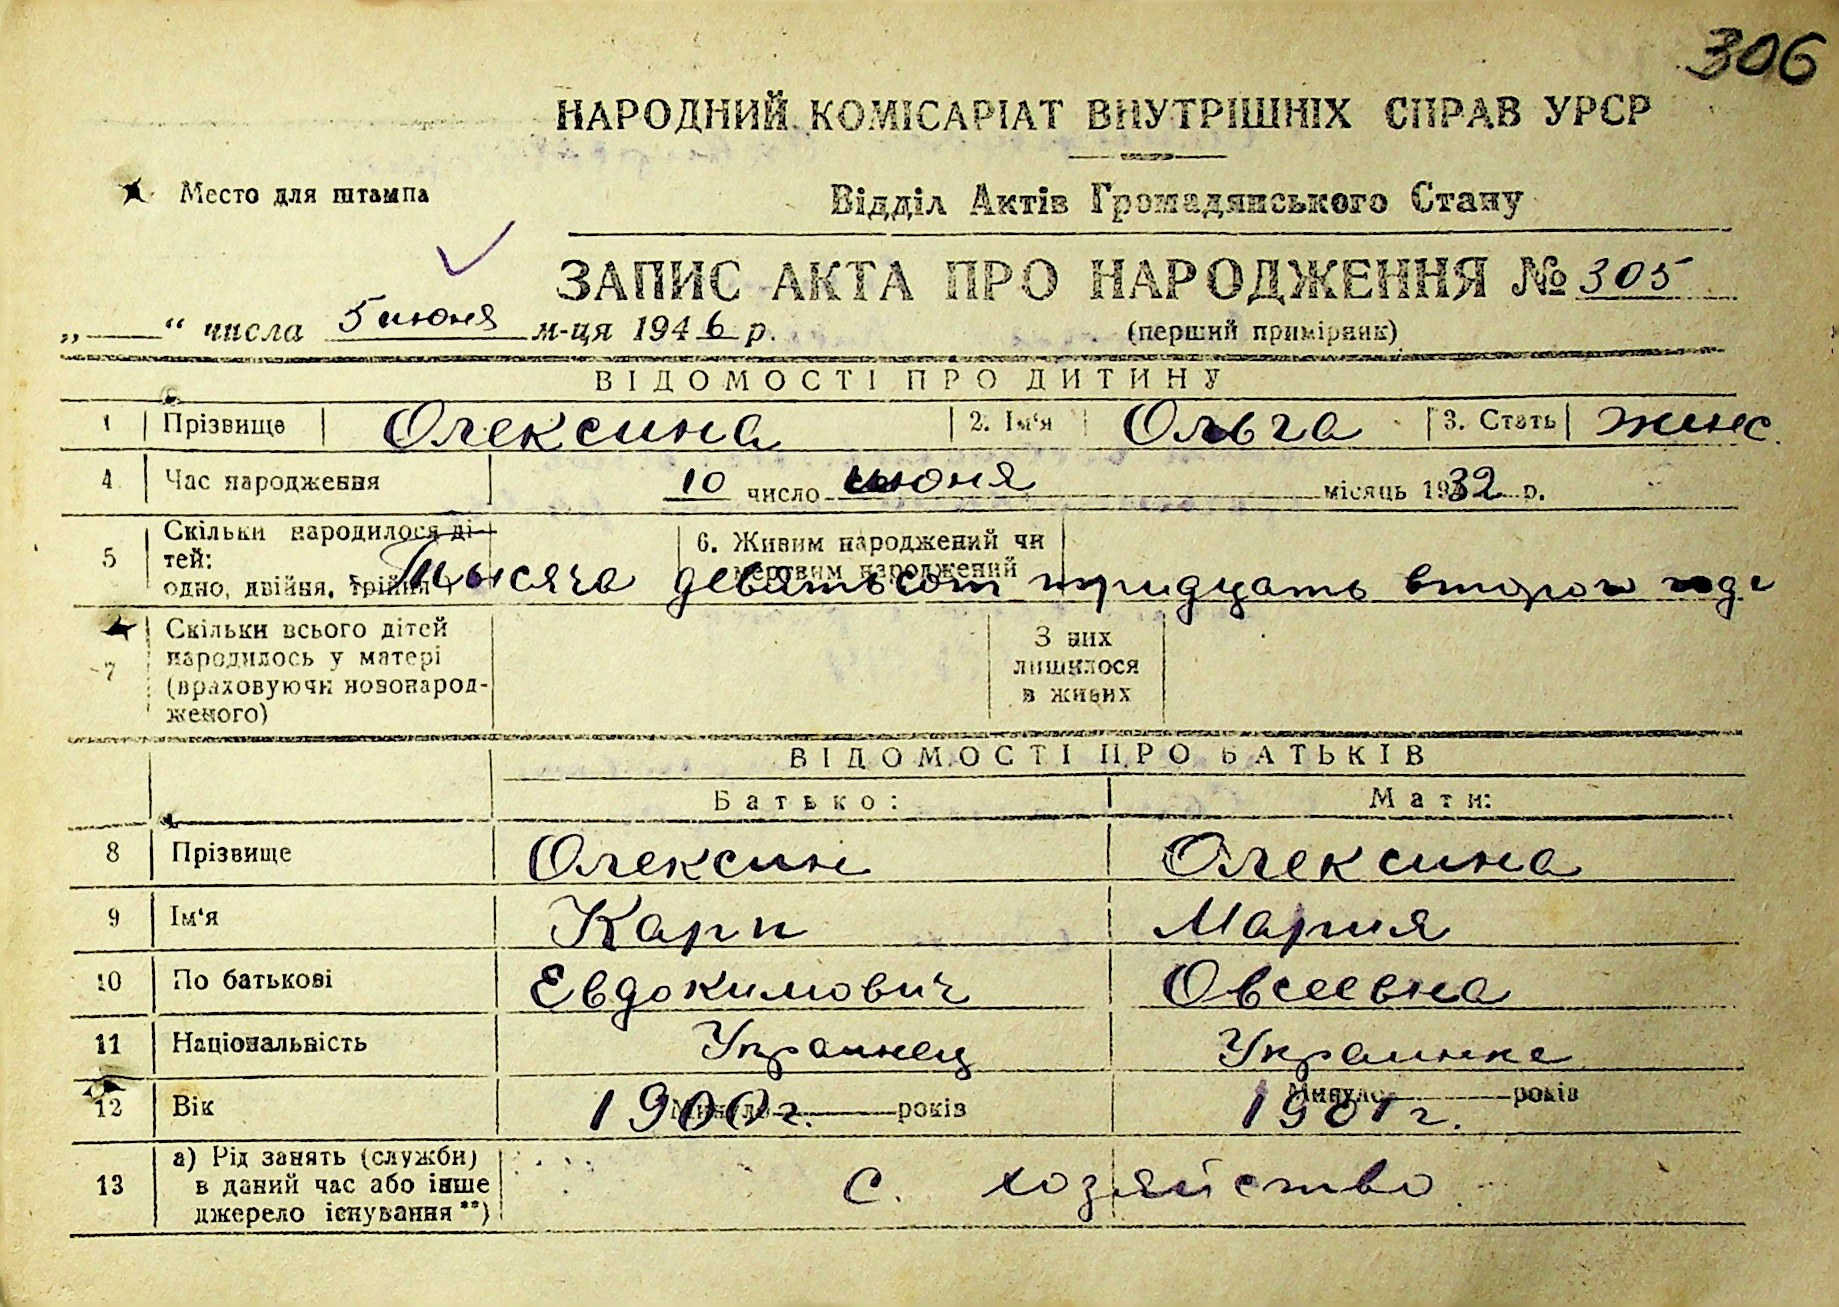 306
НАРОДНИЙ КОМІСАРІАТ ВНУТРІШНІХ СПРАВ УРСР
Место для штампа
Відділ Актів Громадянського Стану
ЗАПИС АКТА ПРО НАРОДЖЕННЯ № 305
„ “ числа 5 июня м-ця 1946 р.
(перший примірник)
ВІДОМОСТІ ПРО ДИТИНУ
1 Прізвище Олексина 2. Ім'я Ольга 3. Стать женс.
4 Час народження 10 число июня місяць 1932 р.
5 Скільки народилося дітей: одно, двійня, трійня 6. Живим народжений чи мертвим народжений
Тысяча девятьсот тридцать второго года
7 Скільки всього дітей народилось у матері (враховуючи новонародженого) З них лишилося в живих
ВІДОМОСТІ ПРО БАТЬКІВ
Батько: Мати:
8 Прізвище Олексин Олексина
9 Ім'я Карп Мария
10 По батькові Евдокимович Овсеевна
11 Національність Украинец Украинка
12 Вік 1900 г. Минуло років 1901 г. Минуло років
13 а) Рід занять (служби) в даний час або інше джерело існування **) с. хозяйство